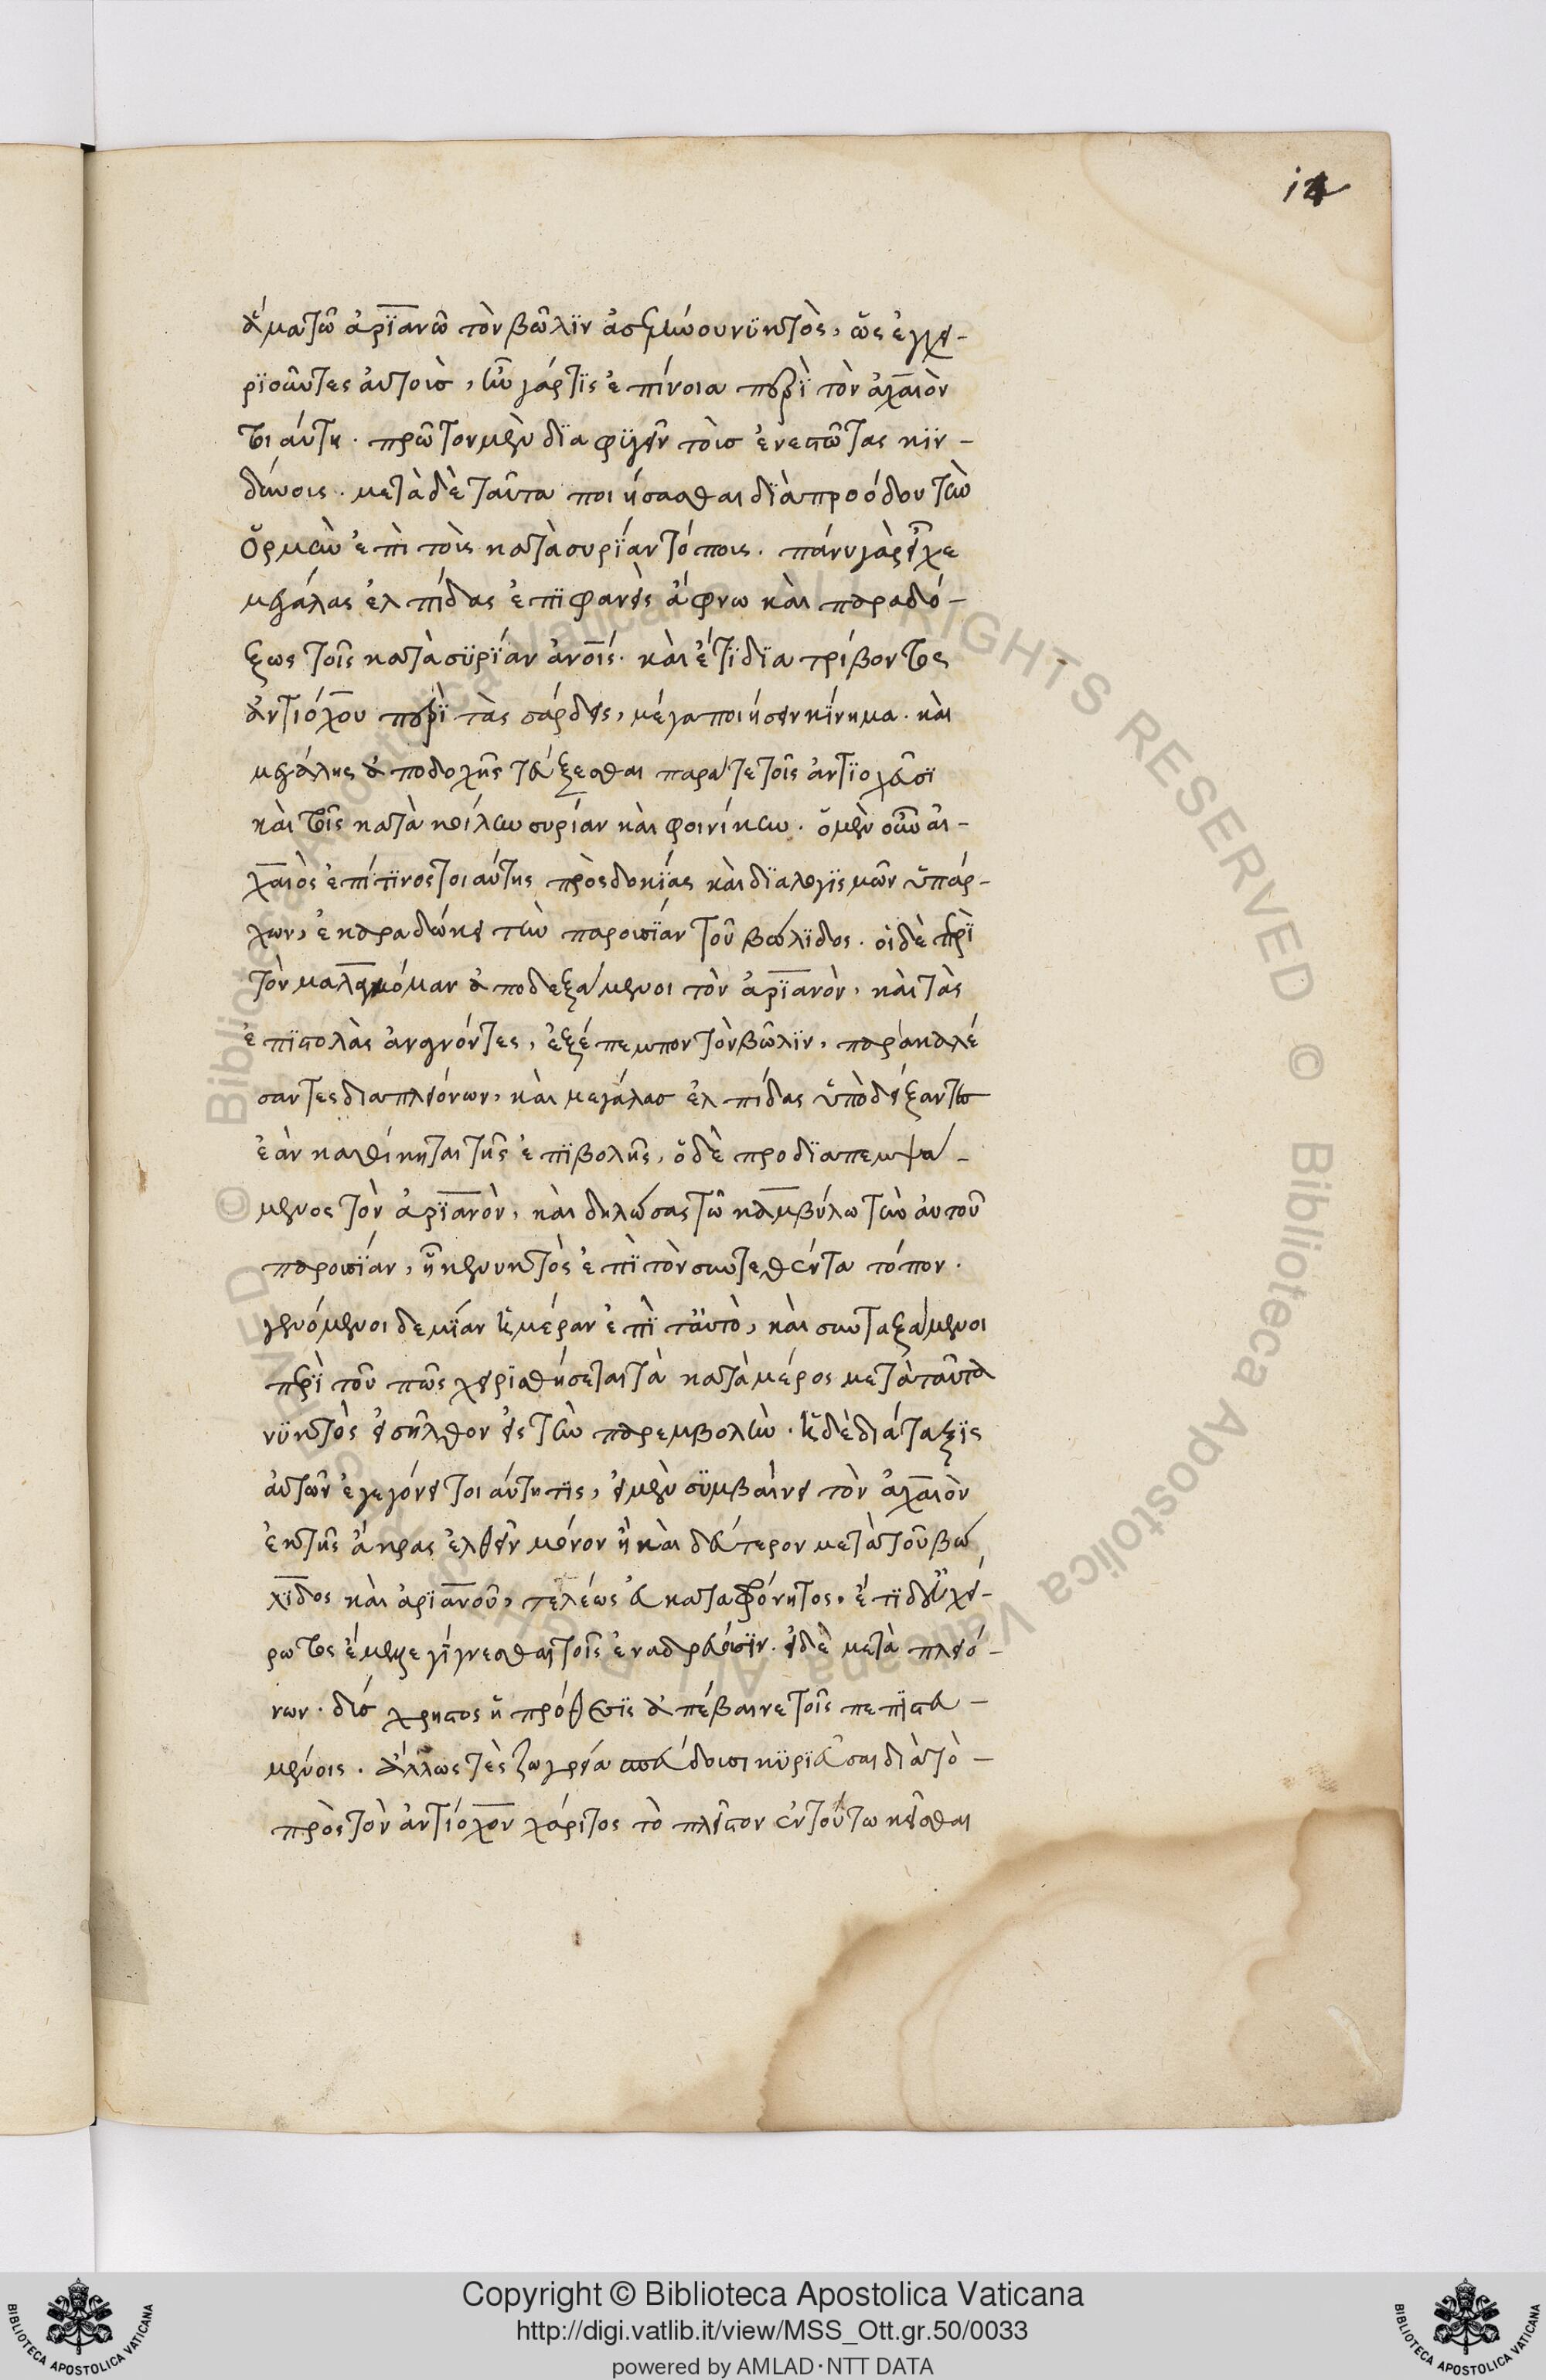 14
ἅμα τῷ ἀρϊανῶ τὸν βῶλϊν ἀσελήνου νϋκτὸς, ὡς ἐγχει-
ρϊοῦντες αὐτοῖσ, ἦν γάρ τϊς ἐπίνοια περῒ τὸν ἀχαιὸν
τοιάυτη. πρῶτον μὲν δϊαφϋγεῖν τοῖσ ἐνεστῶτας κϊν-
δύνοις. μετὰ δὲ ταῦτα ποιήσασθαι δϊὰ προόδου τὴν
ὁρμὴν ἐπὶ τοῖς κατὰ συρίαν τόποις. πάνυ γὰρ εἶχε
μεγάλας ἐλπίδας ἐπϊφανεὶς ἄφνω καὶ παραδό-
ξως τοῖς κατὰ σϋρϊαν ἀνοις. καὶ ἔτϊ δϊατρίβοντος
ἀντιόχου περῒ τὰς σάρδεις, μέγα ποιήσειν κϊνημα. καὶ
μεγάλης ἀποδοχῆς τεύξεσθαι παρά τε τοῖς ἀντϊοχεῦσϊ
καὶ τοῖς κατὰ κοίλην συρίαν καὶ φοινίκην. ὁ μὲν οὖν ἀ-
χαιὸς ἐπί τϊνος τοιαύτης πρὸσδοκϊας καὶ δϊαλογϊσμῶν ὑπάρ-
χων, ἐκαραδώκει τὴν παρουσϊαν τοῦ βώλϊδος. οἱ δὲ περῒ
τὸν μαλαγκόμαν ἀποδεξάμενοι τὸν ἀρϊανὸν, καὶ τὰς
ἐπϊστολὰς ἀναγνόντες, ἐξέπεμπον τὸν βῶλϊν, παρακαλέ
σαντες δια πλειόνων, καὶ μεγάλασ ἐλπίδας ὑπὸδείξαντες
ἐὰν καθίκηται τῆς ἐπϊβολῆς, ὁ δὲ προδϊαπεμψά-
μενος τὸν ἀρϊανὸν, καὶ δηλώσας τῷ καμβύλω τὴν αὐτοῦ
παρουσϊαν, ἧκεν νυκτὸς ἐπῒ τὸν συντεθέντα τόπον.
γενόμενοι δε μϊαν ἡμέραν ἐπῒ ταὐτὸ, καὶ συνταξάμενοι
περῒ τοῦ πῶς χειρϊσθήσεται τὰ κατὰ μέρος μετὰ ταῦτα
νϋκτὸς εἰσῆλθον εἰς τὴν παρεμβολὴν. ἡ δὲ διάταξϊς
αὐτῶν ἐγεγόνει τοιάυτη τϊς, εἰ μὲν σϋμβαίνει τὸν ἀχαιὸν
ἐκ τῆς ἄκρας ἐλθεῖν μόνον ἢ καὶ δεύτερον μετὰ τοῦ βώ
λϊδος καὶ ἀρϊανοῦ, τελέως εὐκαταφρόνητος, ἔτϊ δ' εὐχεί-
ρωτος ἔμελλε γίγνεσθαι τοῖς ἐναδρεύουσϊν. εἰ δὲ μετὰ πλειό-
νων. δύσχρηστος ἡ πρόθεσϊς ἀπέβαινε τοῖς πεπϊστευ-
μένοις. ἄλλως τὲ ζωγρεία σπεύδουσι κϋρϊεῦσαι διὰ τὸ-
πρὸς τὸν ἀντίοχον χάριτος τὸ πλεῖστον ἐν τούτω κεῖσθαι
Copyright © Biblioteca Apostolica Vaticana
http://digi.vatlib.it/view/MSS_Ott.gr.50/0033
powered by AMLAD·NTT DATA